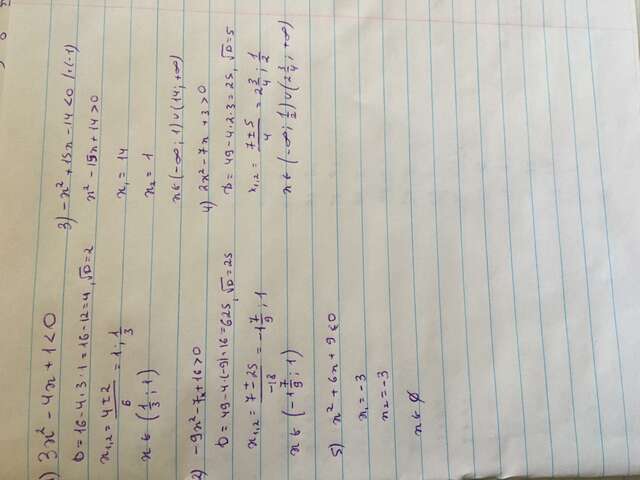 1) 3x² - 4x + 1 < 0
D = 16 - 4·3·1 = 16 - 12 = 4, √D = 2
x₁,₂ = (4 ± 2)/6 = 1; 1/3
x ∈ (1/3; 1)
2) -9x² - 7x + 16 > 0
D = 49 - 4·(-9)·16 = 625, √D = 25
x₁,₂ = (7 ± 25)/-18 = -1 7/9; 1
x ∈ (-1 7/9; 1)
5) x² + 6x + 9 < 0
x₁ = -3
x₂ = -3
x ∈ ∅
3) -x² + 15x - 14 < 0 /·(-1)
x² - 15x + 14 > 0
x₁ = 14
x₂ = 1
x ∈ (-∞; 1) ∪ (14; +∞)
4) 2x² - 7x + 3 > 0
D = 49 - 4·2·3 = 25, √D = 5
x₁,₂ = (7 ± 5)/4 = 2 3/4; 1/2
x ∈ (-∞; 1/2) ∪ (2 3/4; +∞)